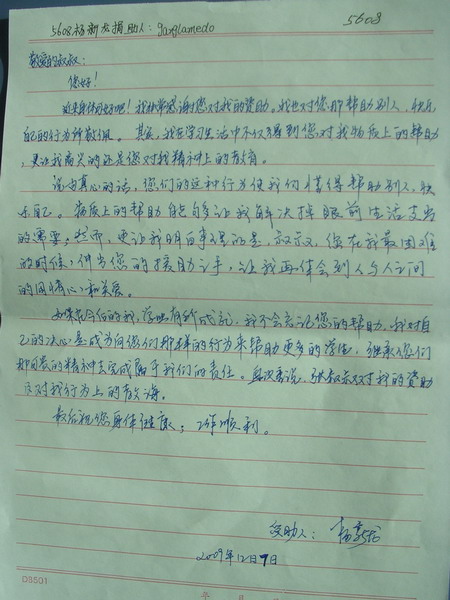 5608杨新龙捐助人:ganglamedo
5608
敬爱的叔叔:
您好!
近来身体可好吧!我非常感谢您对我的资助。我也对您那帮助别人,快乐
自己的行为所敬佩。其实,我在学习生活中不仅得到您对我物质上的帮助
更让我高兴的还是您对我精神上的教育。
说句真心的话,您们的这种行为使我们懂得帮助别人,快
乐自己。物质上的帮助能够让我解决掉眼前生活支出
的需要;然而,更让我明白事理的是,叔叔,您在我最困难
的时候,伸出您的援助之手,让我再体会到人与人之间
的同情心和关爱。
如果今后的我,学业有所成就,我不会忘记您的帮助。我对自
己的决心是成为向您们那样的行为来帮助更多的学生,继承您们
那同表的精神支完成属于我们的责任。再次来说,张叔叔对我的资助
是对我行为上的教诲。
最后祝您身体健康;工作顺利。
受助人:杨新龙
2009年12月7日
DB501